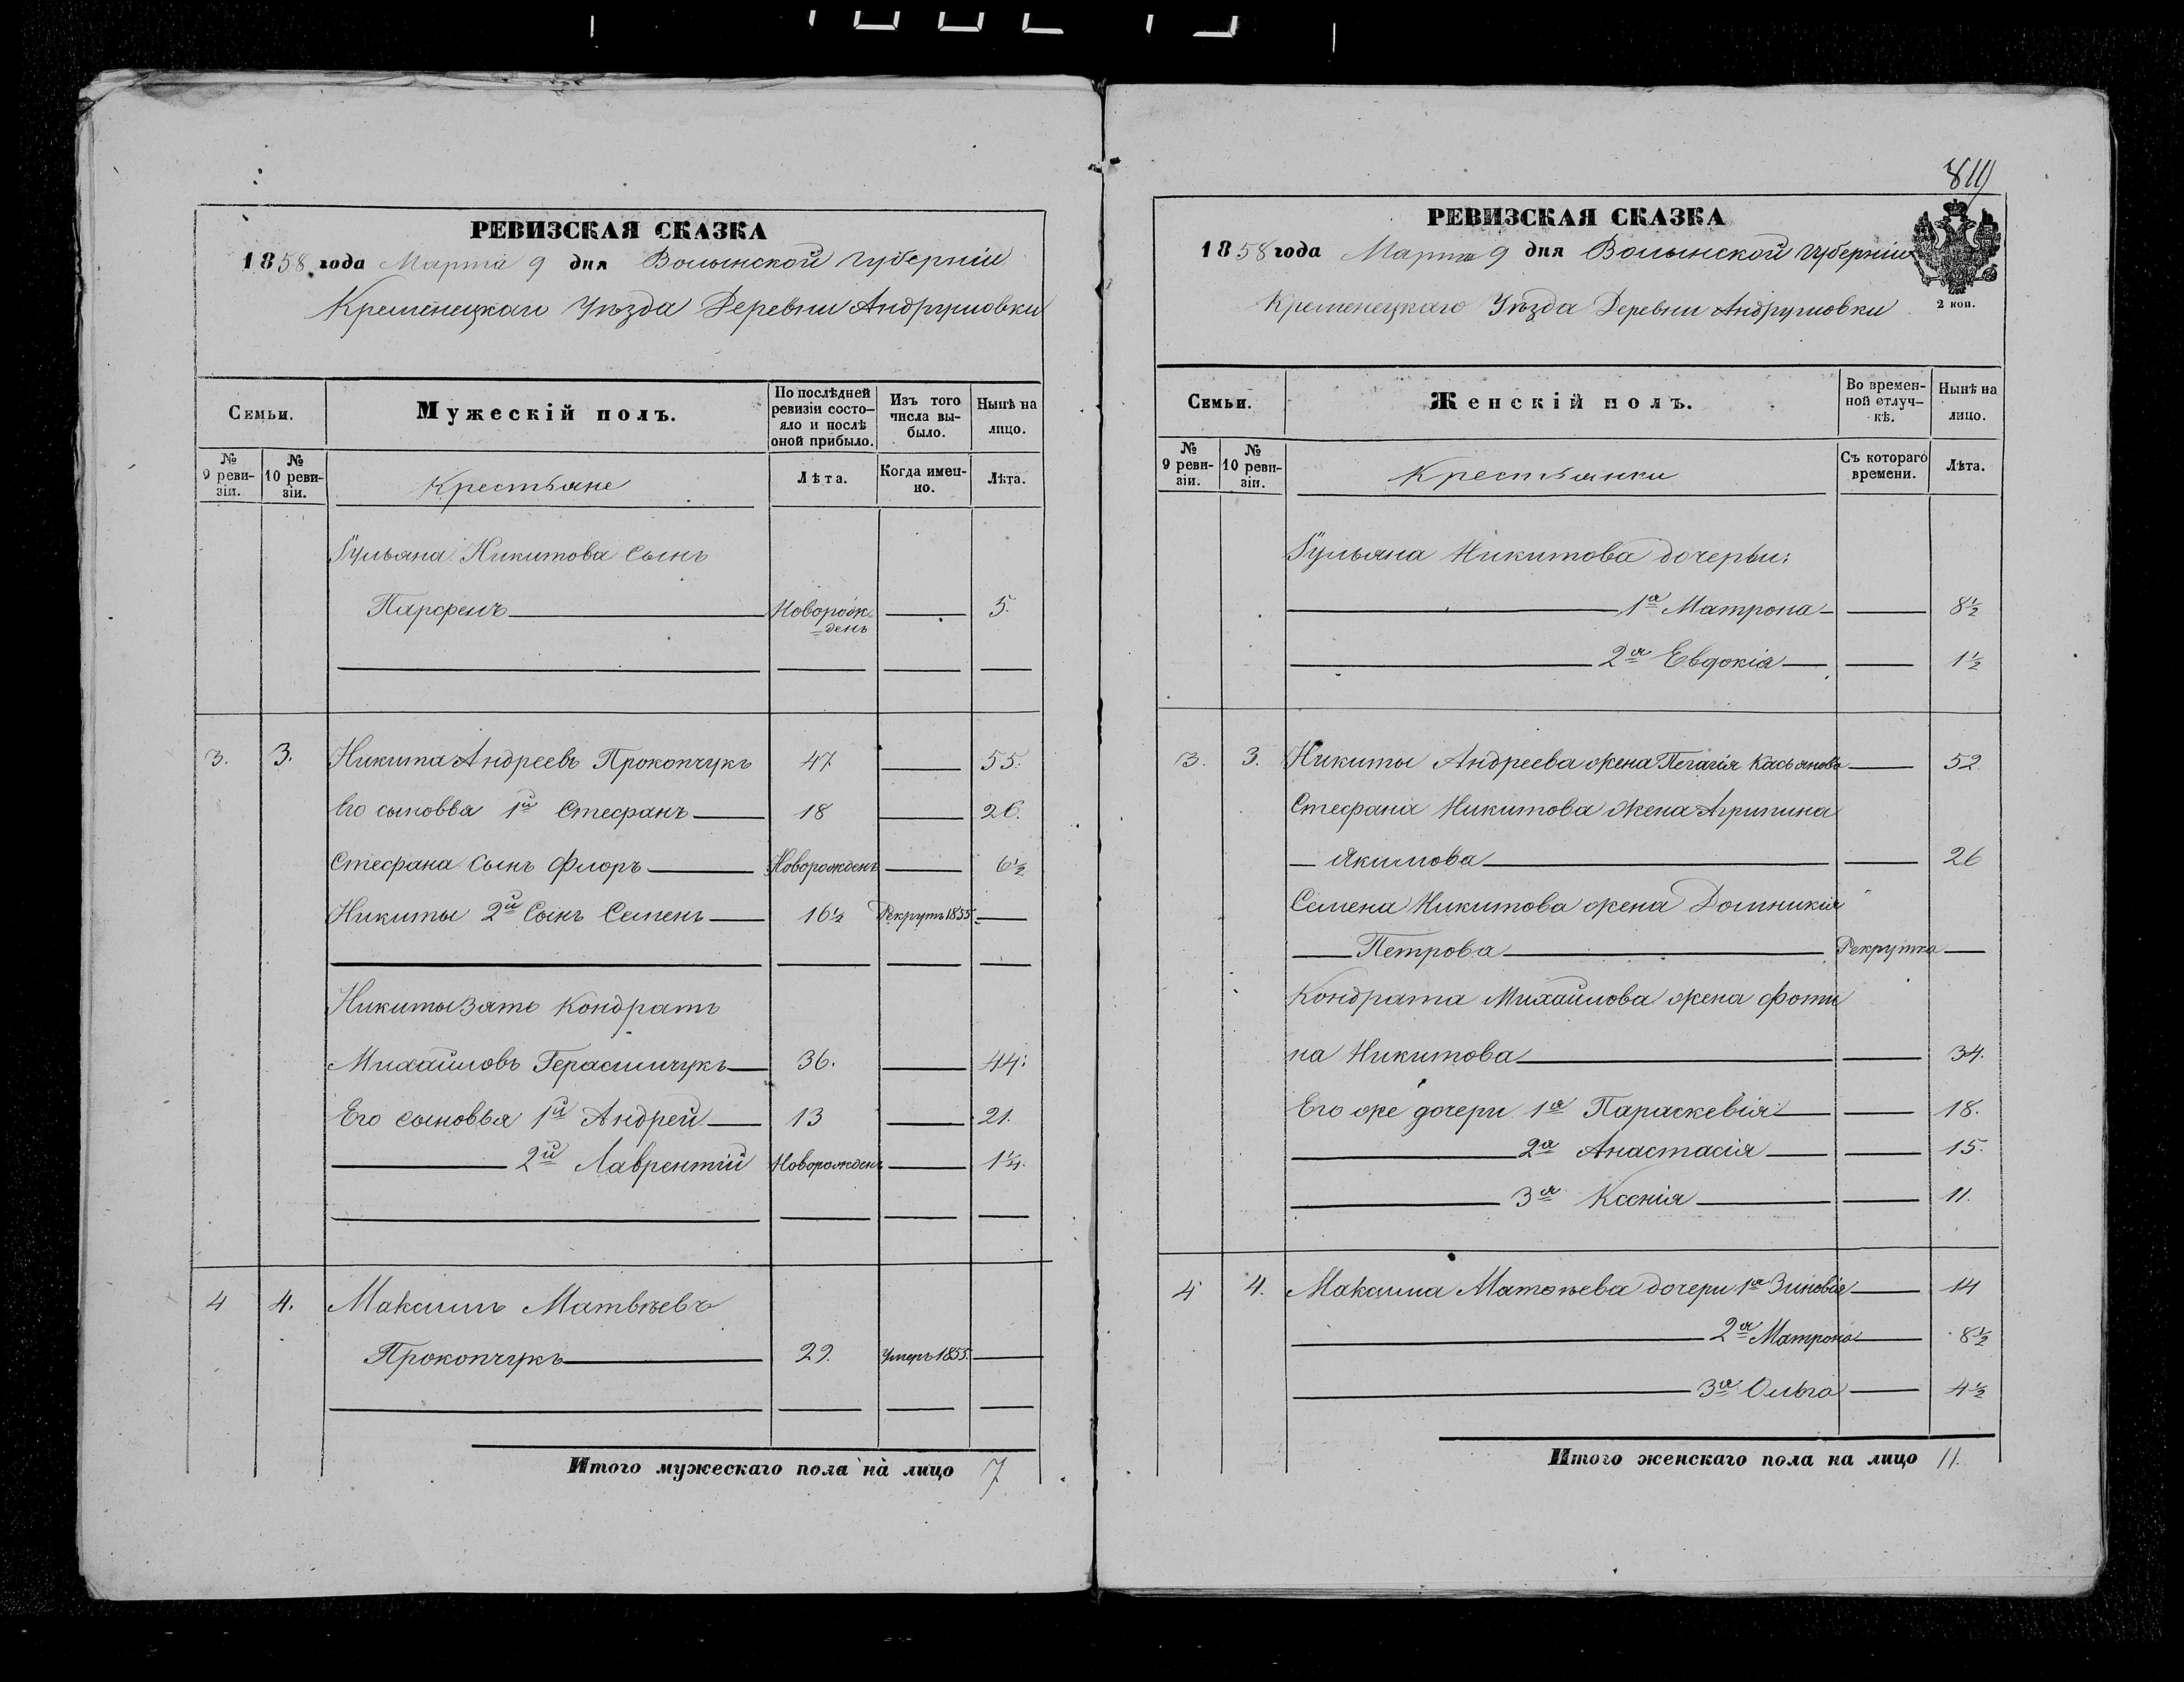 РЕВИЗСКАЯ СКАЗКА
1858 года Марта 9 дня Волынской Губерніи
Кременецкаго Уѣзда Деревни Андрушовки
Семьи.
Мужескій полъ.
По послѣдней ревизіи состо-яло и послѣ оной прибыло.
Изъ того числа вы-было.
Нынѣ на лицо.
№ 9 реви-зіи.
№ 10 реви-зіи.
Крестьяне
Лѣта.
Когда имен-но.
Лѣта.
Гульяна Никитова сынъ
Парфенъ Новорожденъ 5.
3. 3. Никита Андреевъ Прокопчукъ 47 55.
Его сыновья 1й Стефанъ 18 26.
Стефана сынъ Флоръ Новорожденъ 6½
Никиты 2й Сынъ Семенъ 16½ Рекрутъ 1855.
Никиты зять Кондратъ
Михайловъ Герасимчукъ 36. 44.
Его сыновья 1й Андрей 13 21.
2й Лаврентій Новорожденъ 1¼.
4 4. Максимъ Матвѣевъ
Прокопчукъ 29. Умеръ 1855.
Итого мужескаго пола на лицо 7
РЕВИЗСКАЯ СКАЗКА
1858 года Марта 9 дня Волынской Губерніи
Кременецкаго Уѣзда Деревни Андрушовки
2 коп.
Семьи.
Женскій полъ.
Во времен-ной отлуч-кѣ.
Нынѣ на лицо.
№ 9 реви-зіи.
№ 10 реви-зіи.
Крестьянки
Съ котораго времени.
Лѣта.
Гульяна Никитова дочерьи:
1я Матрона 8½
2я Евдокія 1½
3. 3. Никиты Андреева жена Пегагія Касьянова 52
Стефана Никитова жена Агрипина
Якимова 26
Семена Никитова жена Домникія
Петрова Рекрутка
Кондрата Михайлова жена Фоти
на Никитова 34.
Его же дочери 1я Параскевія 18.
2я Анастасія 15.
3я Ксенія 11.
4 4. Максима Матвѣева дочери 1я Зиновія 14
2я Матрона 8½
3я Ольга 4½
Итого женскаго пола на лицо 11.